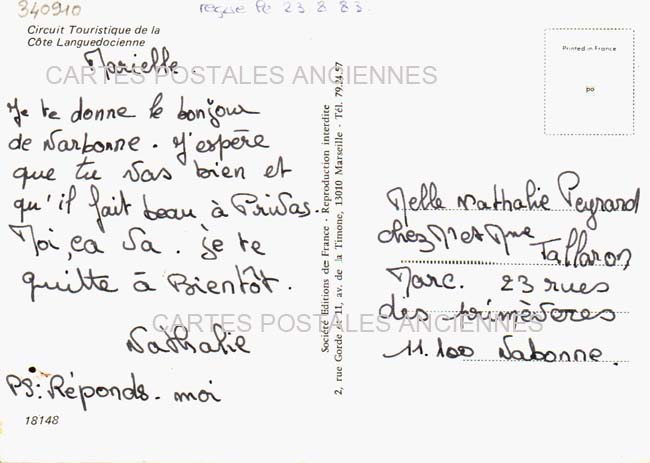 340910
reçue le 23.8.83.
Circuit Touristique de la
Côte Languedocienne
Marielle.
CARTES POSTALES ANCIENNES
Je te donne le bonjour
de Narbonne. J'espère
que tu vas bien et
qu'il fait beau à Privas.
Moi, ça va. je te
quitte à Bientôt.
CARTES POSTALES ANCIENNES
Nathalie
PS: Réponds-moi
18148
Société Editions de France - Reproduction interdite
2, rue Gorde et 11, av. de la Timone, 13010 Marseille - Tél. 79.24.57
Printed in France
po
Melle Nathalie Peyrard
chez M et Mme Tallaron
Marc. 23 rues
des primevères
11.100 Nabonne.